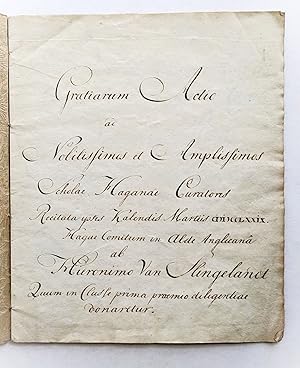 Gratiarum Actio
ad
Nobilissimos et Amplissimos
Scholae Haganae Curatores
Recitata ipsis Kalendis Martiis
Hagae Comitum in Aede Anglicana
ab
Hieronimo Van Slingelandt
Quum in Classe prima praemio diligentiae
donaretur.